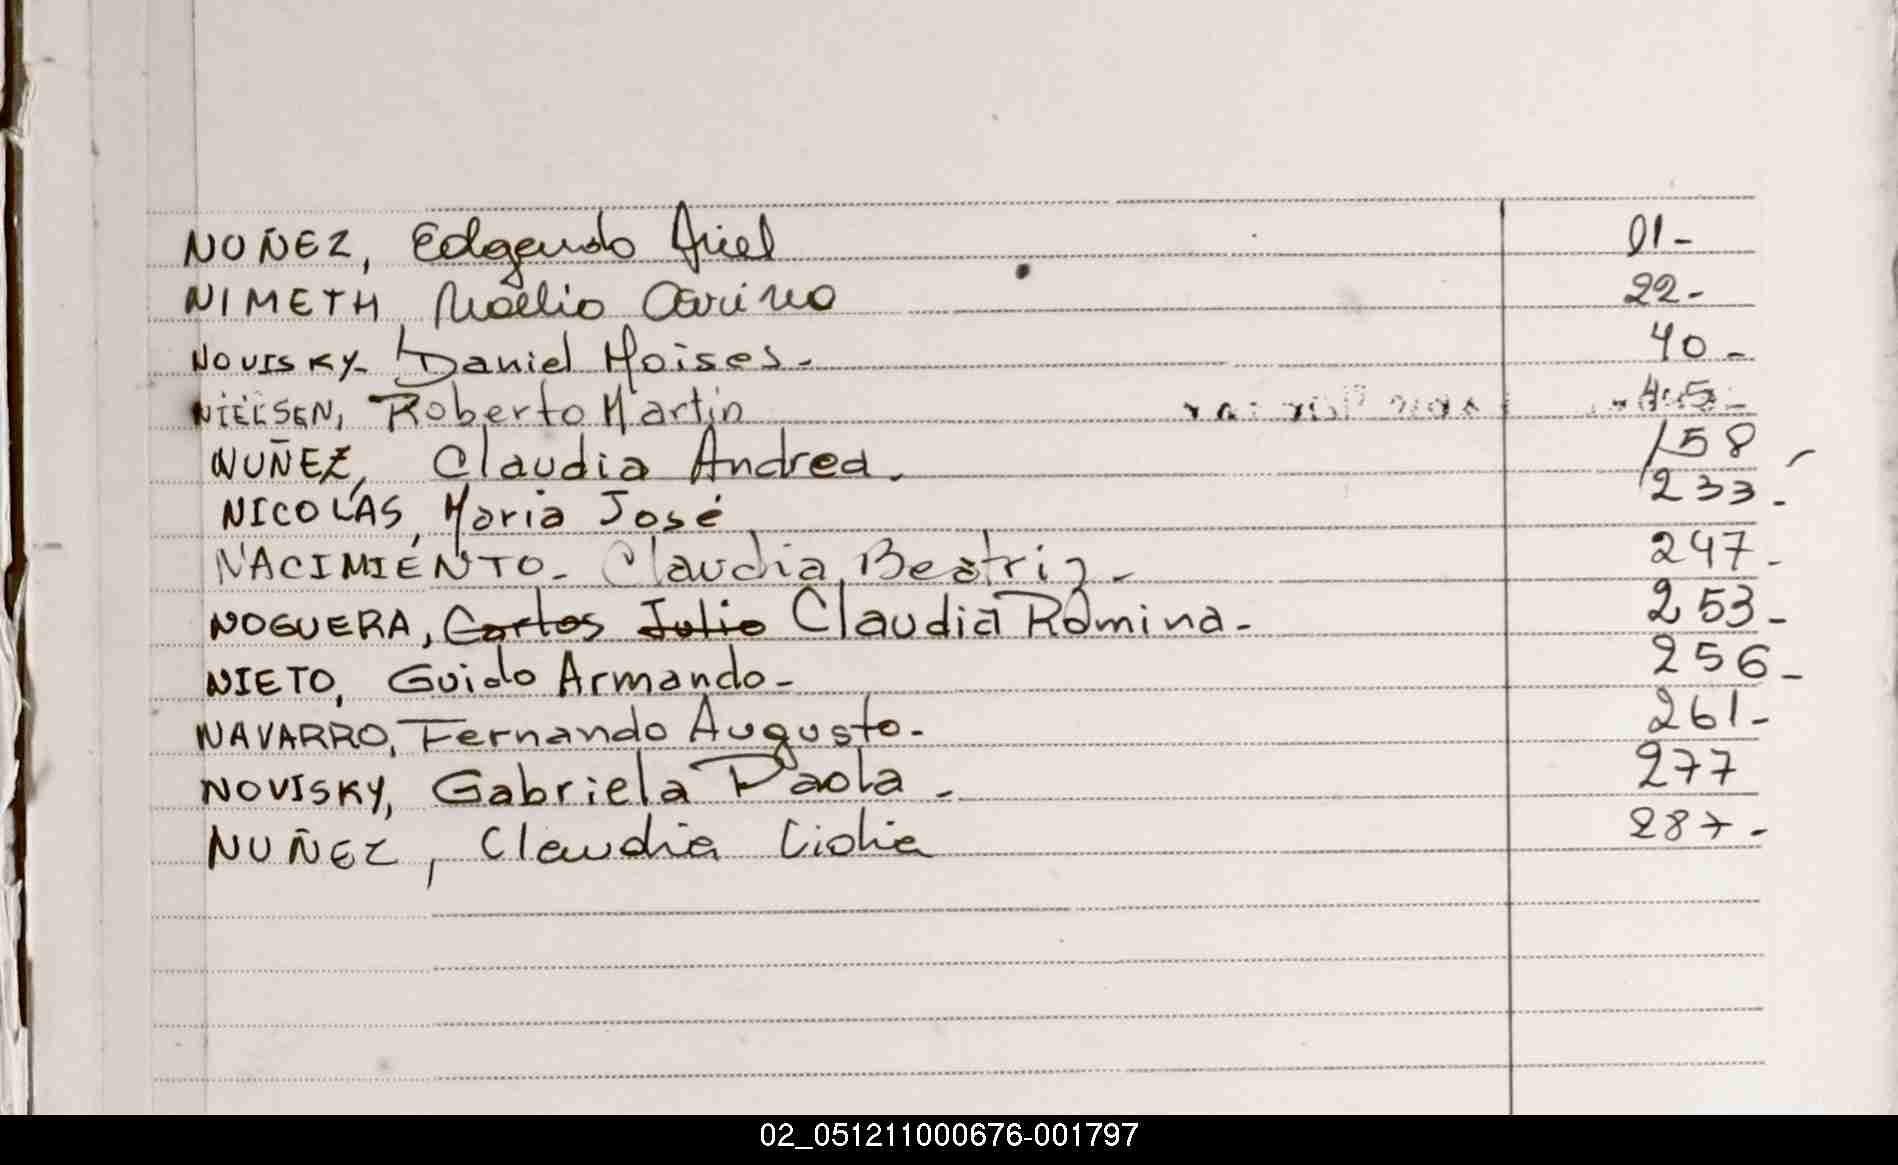 NUÑEZ, Edgardo Ariel 01-
NIMETH, Noelio 22-
NOVISKY- Daniel Moises- 40-
NIELSEN, Roberto Martin 45-
NUÑEZ, Claudia Andrea. 158
NICOLAS, Maria José 233-
NACIMIENTO- Claudia Beatriz- 247-
NOGUERA, Carlos Julio Claudia Romina- 253-
NIETO, Guido Armando- 256-
NAVARRO, Fernando Augusto- 261-
NOVISKY, Gabriela Paola- 277
NUÑEZ, Claudia 287-
02_051211000676-001797